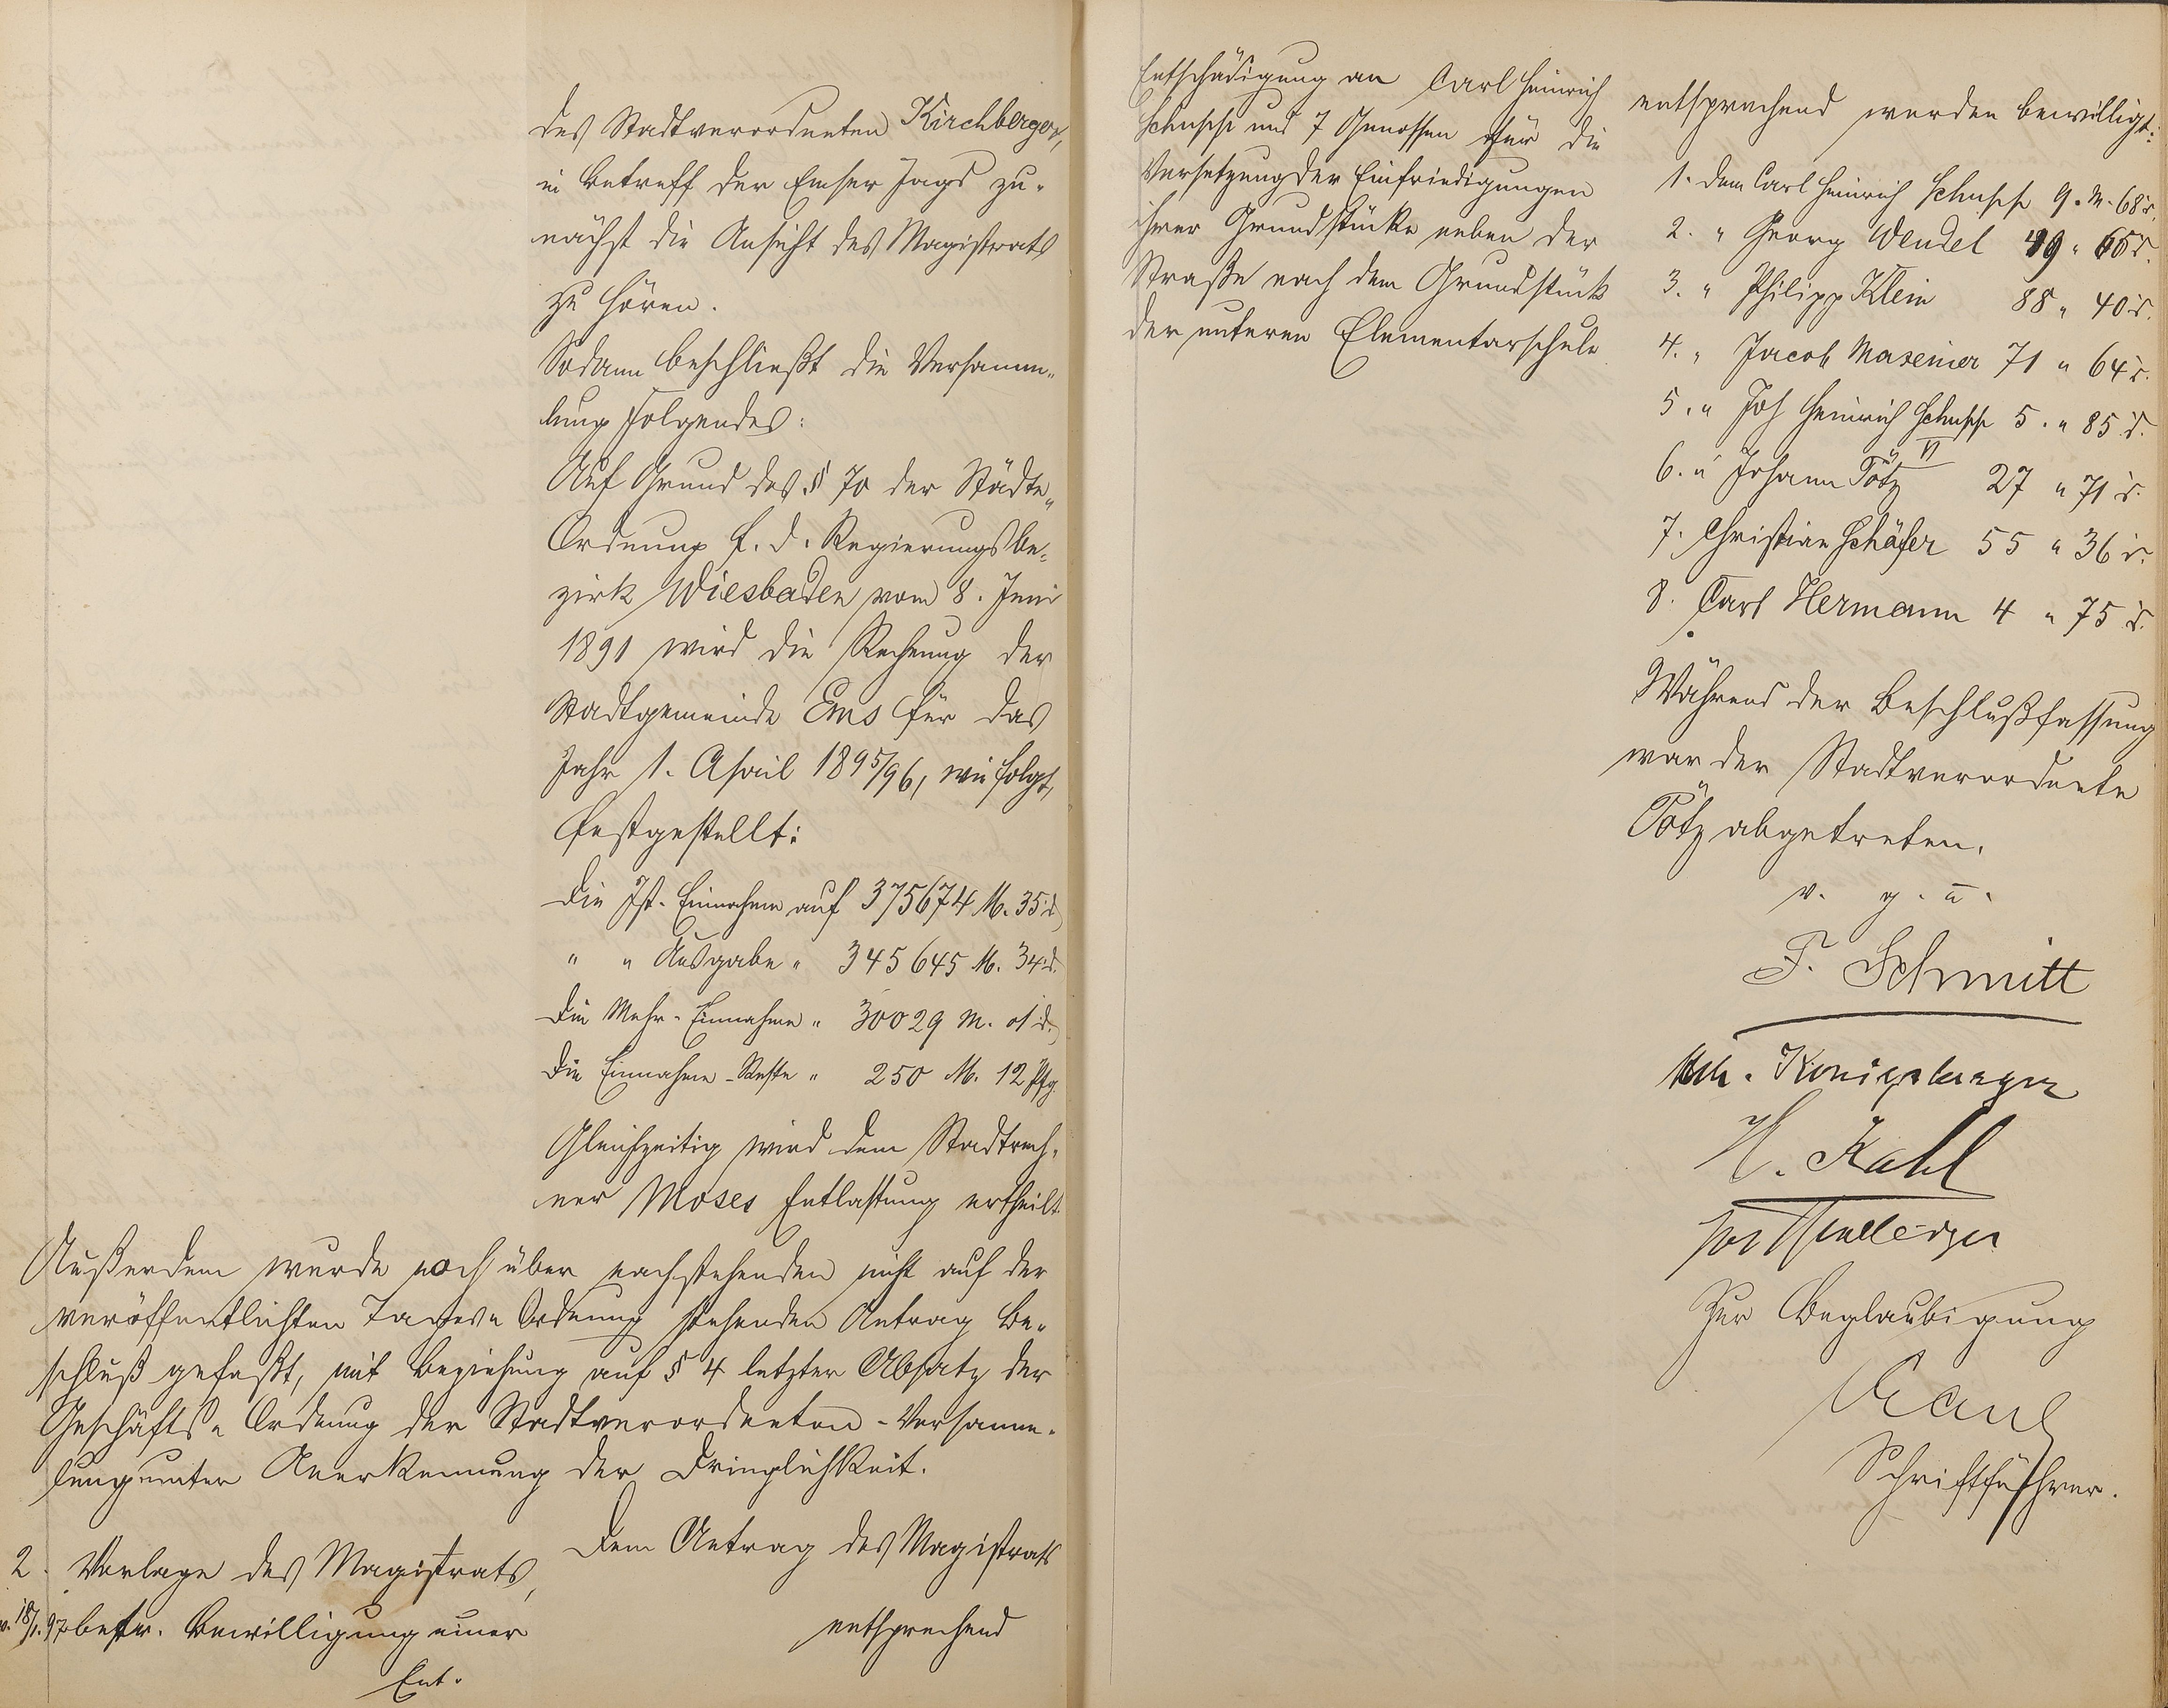 des Stadtverordneten Kirchberger,
in Betreff der Emser Jagd zu-
nächst die Ansicht des Magistrats
zu hören.
Sodann beschließt die Versamm-
lung Folgendes:
Auf Grund des § 70 der Städte-
Ordnung f. d. Regierungsbe-
zirk Wiesbaden vom 8. Juni
1891 wird die Rechnung der
Stadtgemeinde Ems für das
Jahr 1. April 1895/96, wie folgt,
festgestellt:
Die Ist-Einnahme auf 375674 M. 35 d
" " Ausgabe " 345645 M. 34 d.
Die Mehr-Einnahme " 30029 M. 01 d.
Die Einnahme-Reste " 250 M. 12 Pfg.
Gleichzeitig wird dem Stadtrech-
ner Moses Entlastung ertheilt.
Außerdem wurde noch über nachstehenden nicht auf der
veröffentlichten Tages-Ordnung stehenden Antrag Be-
schluß gefaßt, mit Beziehung auf § 4 letzter Absatz der
Geschäfts-Ordnung der Stadtverordneten-Versamm-
lung unter Anerkennung der Dringlichkeit.
2. Vorlage des Magistrats,
v. 18/1. 97 betr. Bewilligung einer
Ent-
Dem Antrag des Magistrats
entsprechend
Entschädigung an Carl Heinrich
Schupp und 7 Genossen für die
Versetzung der Einfriedigungen
ihrer Grundstücke neben der
Straße nach dem Grundstück
der unteren Elementarschule
entsprechend werden bewilligt:
1. dem Carl Heinrich Schupp 9. M. 68 d.
2. " Georg Wendel 49 " 65 d.
3. " Philipp Klein 88 " 40 d.
4. " Jacob 71 " 64 d.
5. " Joh Heinrich Schupp 5. " 85 d.
6. " Johann Pötz VI 27 " 71 d.
7. Christian Schäfer 55 " 36 d.
8. Carl Hermann 4 " 75 d.
Während der Beschlußfassung
war der Stadtverordnete
Pötz abgetreten.
v. g. u.
F. Schmitt
Königsberger
H. Kahl
Zur Beglaubigung
Schriftführer.